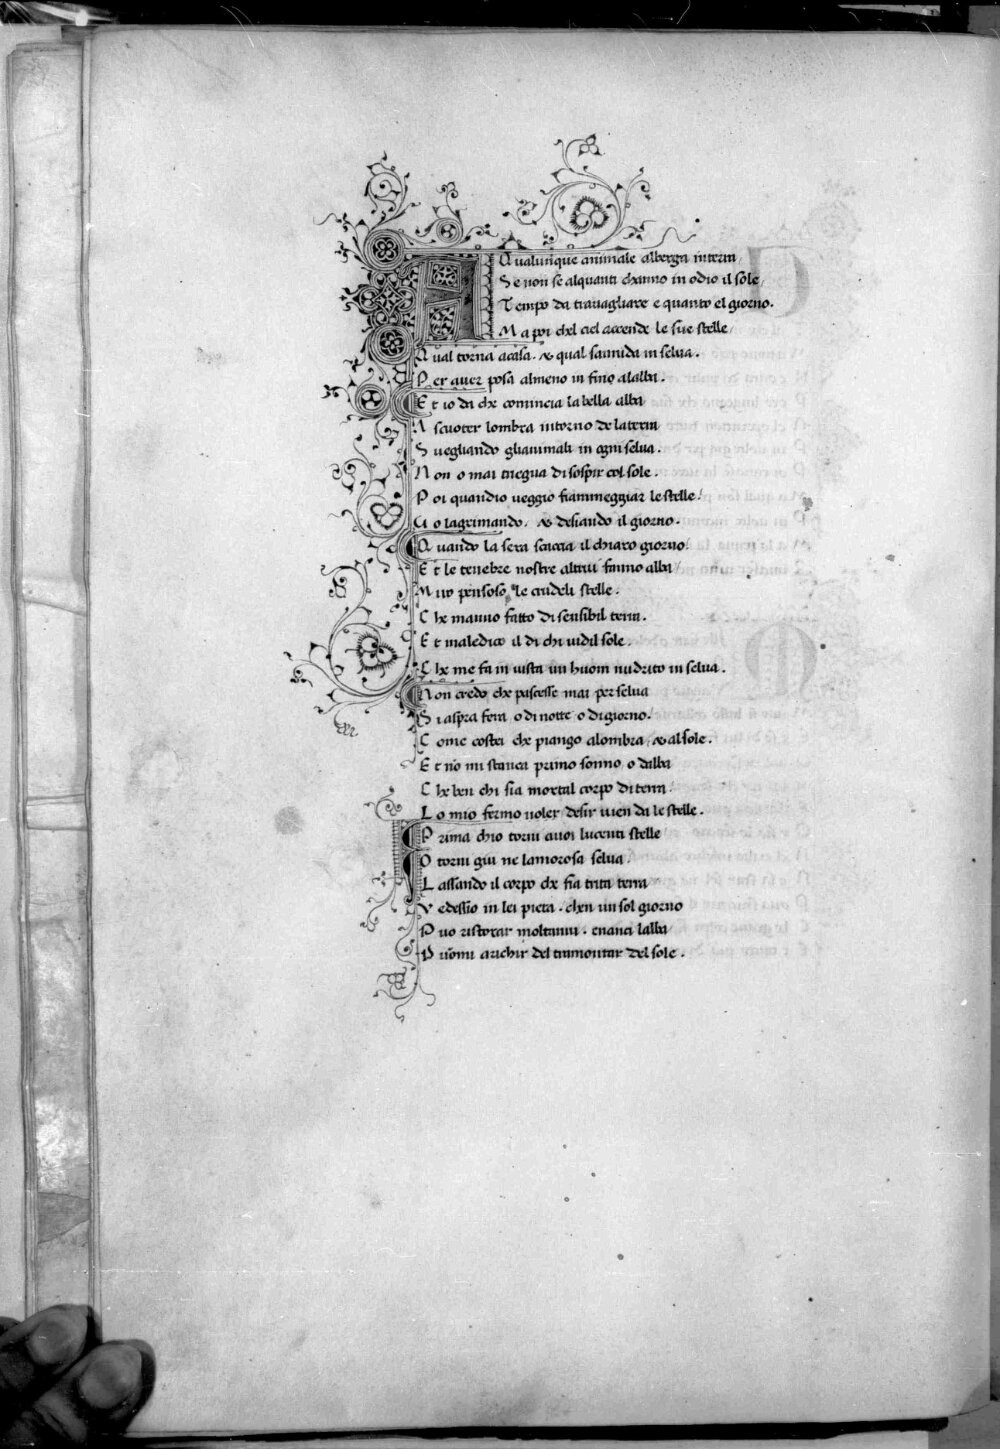 A Qualunque animale alberga in terra
Se non se alquanti channo in odio il sole
Tempo da travagliare e quanto el giorno.
Ma poi chel ciel accende le sue stelle
Qual torna acasa. & qual sannida in selva.
Per aver posa almeno in fino alalba.
Et io da che comincia la bella alba
A scuoter lombra intorno de laterra
Svegliando glianimali in ogni selva.
Non o mai triegua di sospir col sole.
Poi quandio veggio fiammeggiar le stelle
Vo lagrimando. & desiando il giorno.
Quando la sera scaccia il chiaro giorno
Et le tenebre nostre altrui fanno alba
Miro pensoso le crudeli stelle.
Che manno fatto di sensibil terra.
Et maledico il di chi vidil sole.
Che me fa in vista un huom nudrito in selva.
Non credo che pascesse mai per selva
Si aspra fera o di notte o di giorno.
Come costei che piango alombra & al sole.
Et nō mi stanca primo sonno o dalba
Che ben chi sia mortal corpo di terra
Lo mio fermo voler desir vien da le stelle.
Prima chio torni avoi lucenti stelle
O torni giu ne lamorosa selva.
Lassando il corpo che fia trita terra
Vedessio in lei pieta. chen un sol giorno
Puo ristorar moltanni. enanci lalba
Puomi arichir del tramontar del sole.